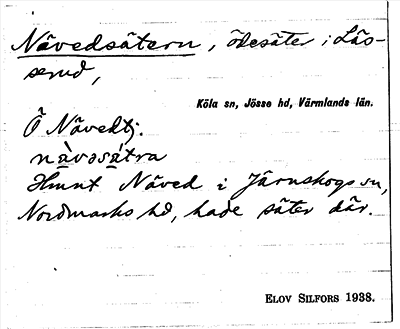 Nävedsätern, ödesäter i Läs-
serud,
Köla sn, Jösse hd, Värmlands län.
Ö Nävedtj.
nàvəsá̀tra
Hmnt Näved i Järnskogs sn,
Nordmarks hd, hade säter där.
ELOV SILFORS 1938.